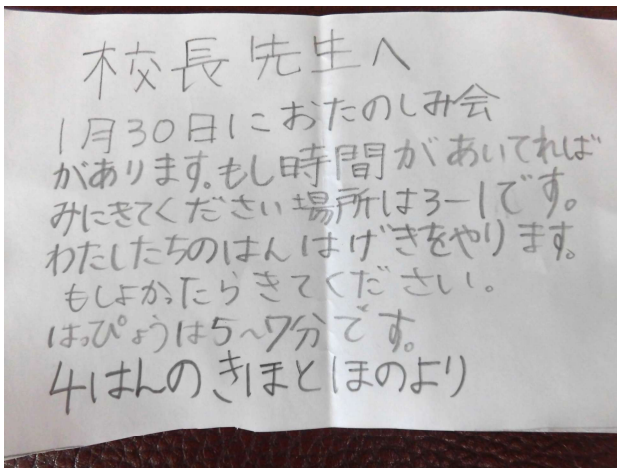 校長先生へ
1月30日におたのしみ会
があります。もし時間があいてれば
みにきてください場所は3-1です。
わたしたちのはんはげきをやります。
もしよかったらきてください。
はっぴょうは5〜7分です。
4はんのきほとほのより